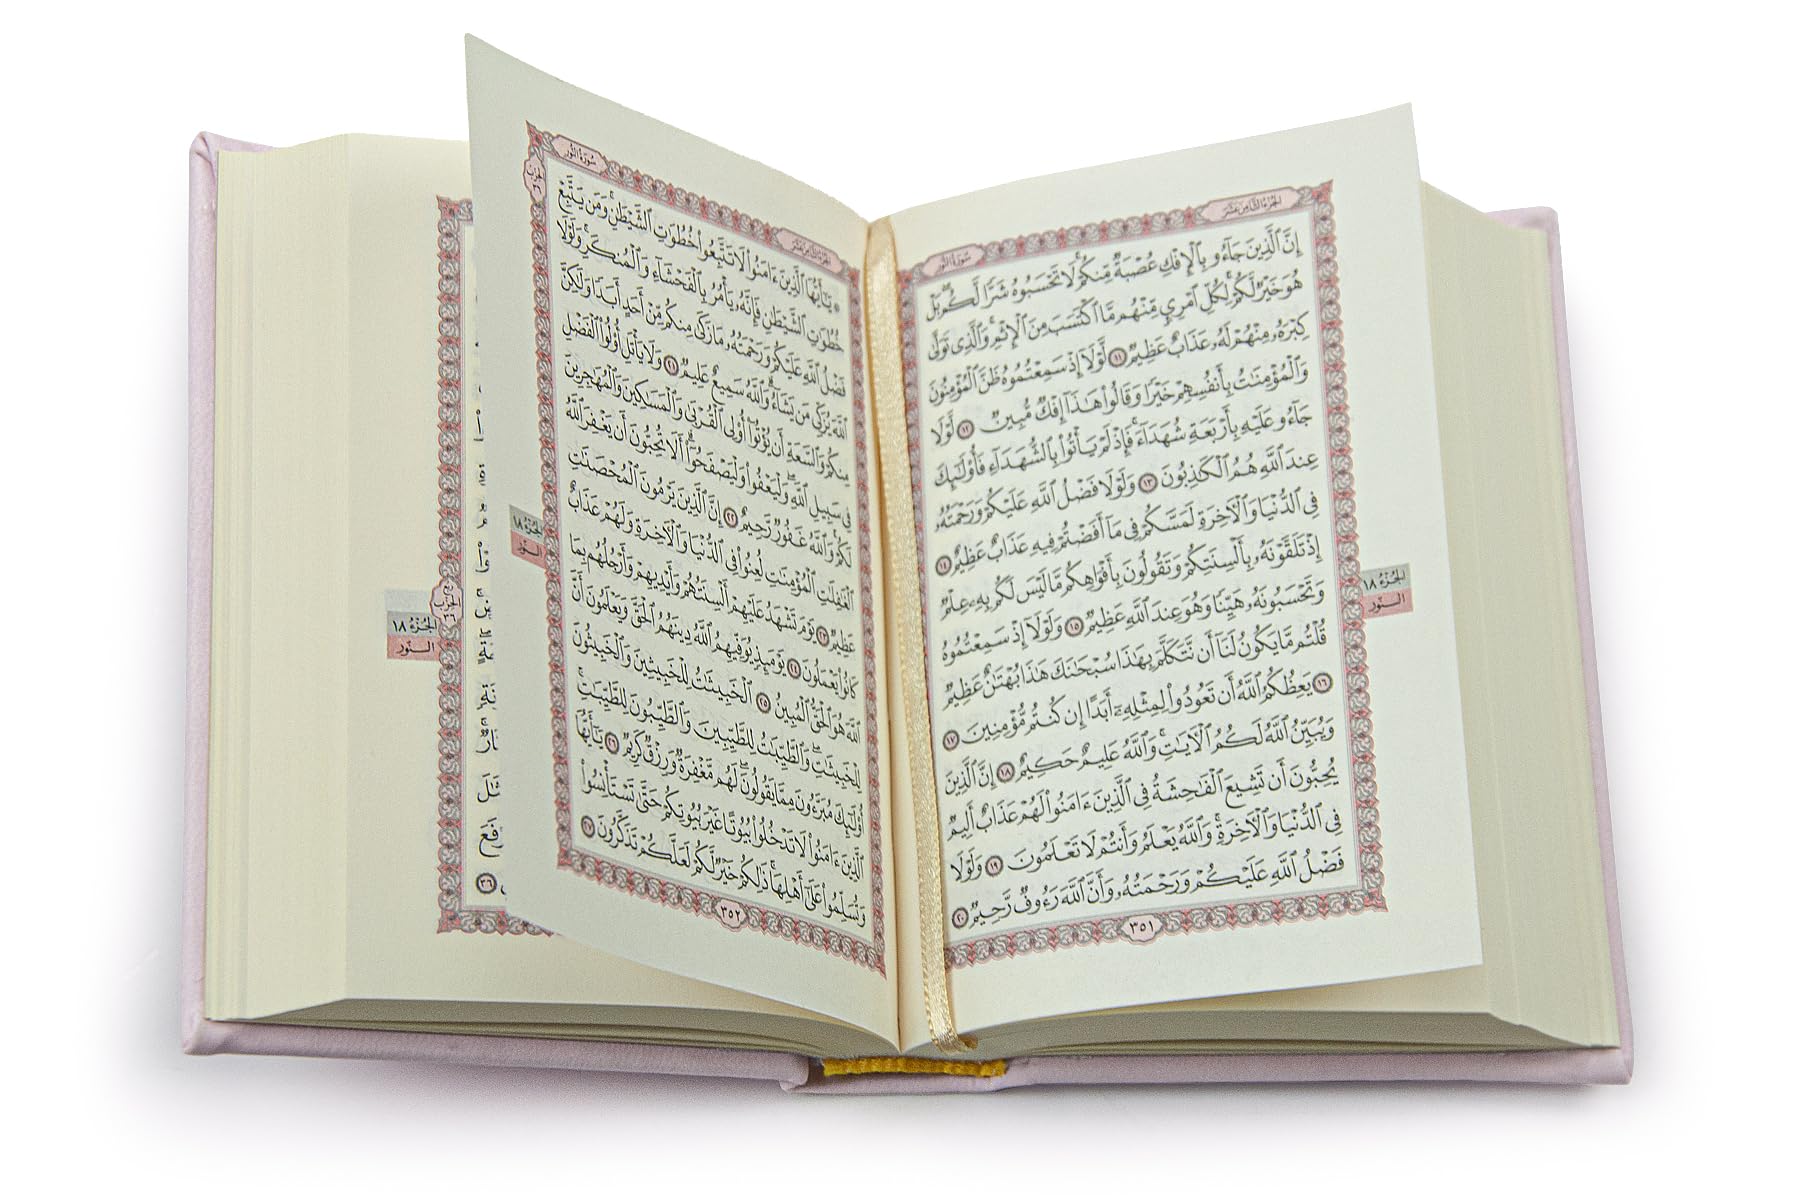 الجزء الثامن عشر
سورة النور
إِنَّ ٱلَّذِينَ جَآءُو بِٱلْإِفْكِ عُصْبَةٌ مِّنكُمْ لَا تَحْسَبُوهُ شَرًّا لَّكُم بَلْ
هُوَ خَيْرٌ لَّكُمْ لِكُلِّ ٱمْرِئٍ مِّنْهُم مَّا ٱكْتَسَبَ مِنَ ٱلْإِثْمِ وَٱلَّذِى تَوَلَّىٰ
كِبْرَهُۥ مِنْهُمْ لَهُۥ عَذَابٌ عَظِيمٌ ١١ لَّوْلَآ إِذْ سَمِعْتُمُوهُ ظَنَّ ٱلْمُؤْمِنُونَ
وَٱلْمُؤْمِنَٰتُ بِأَنفُسِهِمْ خَيْرًا وَقَالُوا۟ هَٰذَآ إِفْكٌ مُّبِينٌ ١٢ لَّوْلَا
جَآءُو عَلَيْهِ بِأَرْبَعَةِ شُهَدَآءَ فَإِذْ لَمْ يَأْتُوا۟ بِٱلشُّهَدَآءِ فَأُو۟لَٰٓئِكَ
عِندَ ٱللَّهِ هُمُ ٱلْكَٰذِبُونَ ١٣ وَلَوْلَا فَضْلُ ٱللَّهِ عَلَيْكُمْ وَرَحْمَتُهُۥ
فِى ٱلدُّنْيَا وَٱلْءَاخِرَةِ لَمَسَّكُمْ فِى مَآ أَفَضْتُمْ فِيهِ عَذَابٌ عَظِيمٌ ١٤
إِذْ تَلَقَّوْنَهُۥ بِأَلْسِنَتِكُمْ وَتَقُولُونَ بِأَفْوَاهِكُم مَّا لَيْسَ لَكُم بِهِۦ عِلْمٌ
وَتَحْسَبُونَهُۥ هَيِّنًا وَهُوَ عِندَ ٱللَّهِ عَظِيمٌ ١٥ وَلَوْلَآ إِذْ سَمِعْتُمُوهُ
قُلْتُم مَّا يَكُونُ لَنَآ أَن نَّتَكَلَّمَ بِهَٰذَا سُبْحَٰنَكَ هَٰذَا بُهْتَٰنٌ عَظِيمٌ
١٦ يَعِظُكُمُ ٱللَّهُ أَن تَعُودُوا۟ لِمِثْلِهِۦٓ أَبَدًا إِن كُنتُم مُّؤْمِنِينَ ١٧
وَيُبَيِّنُ ٱللَّهُ لَكُمُ ٱلْءَايَٰتِ وَٱللَّهُ عَلِيمٌ حَكِيمٌ ١٨ إِنَّ ٱلَّذِينَ
يُحِبُّونَ أَن تَشِيعَ ٱلْفَٰحِشَةُ فِى ٱلَّذِينَ ءَامَنُوا۟ لَهُمْ عَذَابٌ أَلِيمٌ
فِى ٱلدُّنْيَا وَٱلْءَاخِرَةِ وَٱللَّهُ يَعْلَمُ وَأَنتُمْ لَا تَعْلَمُونَ ١٩ وَلَوْلَا
فَضْلُ ٱللَّهِ عَلَيْكُمْ وَرَحْمَتُهُۥ وَأَنَّ ٱللَّهَ رَءُوفٌ رَّحِيمٌ ٢٠
٣٥١
الجزء ١٨
النور
الجزء الثامن عشر
سورة النور
يَٰٓأَيُّهَا ٱلَّذِينَ ءَامَنُوا۟ لَا تَتَّبِعُوا۟ خُطُوَٰتِ ٱلشَّيْطَٰنِ وَمَن يَتَّبِعْ
خُطُوَٰتِ ٱلشَّيْطَٰنِ فَإِنَّهُۥ يَأْمُرُ بِٱلْفَحْشَآءِ وَٱلْمُنكَرِ وَلَوْلَا
فَضْلُ ٱللَّهِ عَلَيْكُمْ وَرَحْمَتُهُۥ مَا زَكَىٰ مِنكُم مِّنْ أَحَدٍ أَبَدًا وَلَٰكِنَّ
ٱللَّهَ يُزَكِّى مَن يَشَآءُ وَٱللَّهُ سَمِيعٌ عَلِيمٌ ٢١ وَلَا يَأْتَلِ أُو۟لُوا۟ ٱلْفَضْلِ
مِنكُمْ وَٱلسَّعَةِ أَن يُؤْتُوٓا۟ أُو۟لِى ٱلْقُرْبَىٰ وَٱلْمَسَٰكِينَ وَٱلْمُهَٰجِرِينَ
فِى سَبِيلِ ٱللَّهِ وَلْيَعْفُوا۟ وَلْيَصْفَحُوٓا۟ أَلَا تُحِبُّونَ أَن يَغْفِرَ ٱللَّهُ
لَكُمْ وَٱللَّهُ غَفُورٌ رَّحِيمٌ ٢٢ إِنَّ ٱلَّذِينَ يَرْمُونَ ٱلْمُحْصَنَٰتِ
ٱلْغَٰفِلَٰتِ ٱلْمُؤْمِنَٰتِ لُعِنُوا۟ فِى ٱلدُّنْيَا وَٱلْءَاخِرَةِ وَلَهُمْ عَذَابٌ
عَظِيمٌ ٢٣ يَوْمَ تَشْهَدُ عَلَيْهِمْ أَلْسِنَتُهُمْ وَأَيْدِيهِمْ وَأَرْجُلُهُم بِمَا
كَانُوا۟ يَعْمَلُونَ ٢٤ يَوْمَئِذٍ يُوَفِّيهِمُ ٱللَّهُ دِينَهُمُ ٱلْحَقَّ وَيَعْلَمُونَ أَنَّ
ٱللَّهَ هُوَ ٱلْحَقُّ ٱلْمُبِينُ ٢٥ ٱلْخَبِيثَٰتُ لِلْخَبِيثِينَ وَٱلْخَبِيثُونَ
لِلْخَبِيثَٰتِ وَٱلطَّيِّبَٰتُ لِلطَّيِّبِينَ وَٱلطَّيِّبُونَ لِلطَّيِّبَٰتِ
أُو۟لَٰٓئِكَ مُبَرَّءُونَ مِمَّا يَقُولُونَ لَهُم مَّغْفِرَةٌ وَرِزْقٌ كَرِيمٌ ٢٦ يَٰٓأَيُّهَا
ٱلَّذِينَ ءَامَنُوا۟ لَا تَدْخُلُوا۟ بُيُوتًا غَيْرَ بُيُوتِكُمْ حَتَّىٰ تَسْتَأْنِسُوا۟
وَتُسَلِّمُوا۟ عَلَىٰٓ أَهْلِهَا ذَٰلِكُمْ خَيْرٌ لَّكُمْ لَعَلَّكُمْ تَذَكَّرُونَ ٢٧
٣٥٢
الجزء ١٨
النور
الجزء ١٨
النور
٣٦